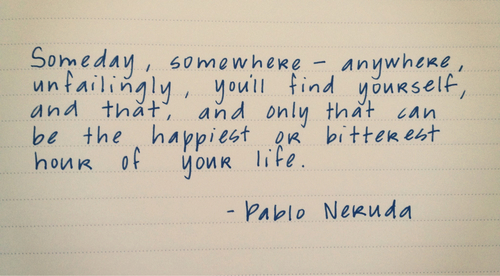 Someday, somewhere – anywhere,
unfailingly, you'll find yourself,
and that, and only that can
be the happiest or bitterest
hour of your life.
- Pablo Neruda